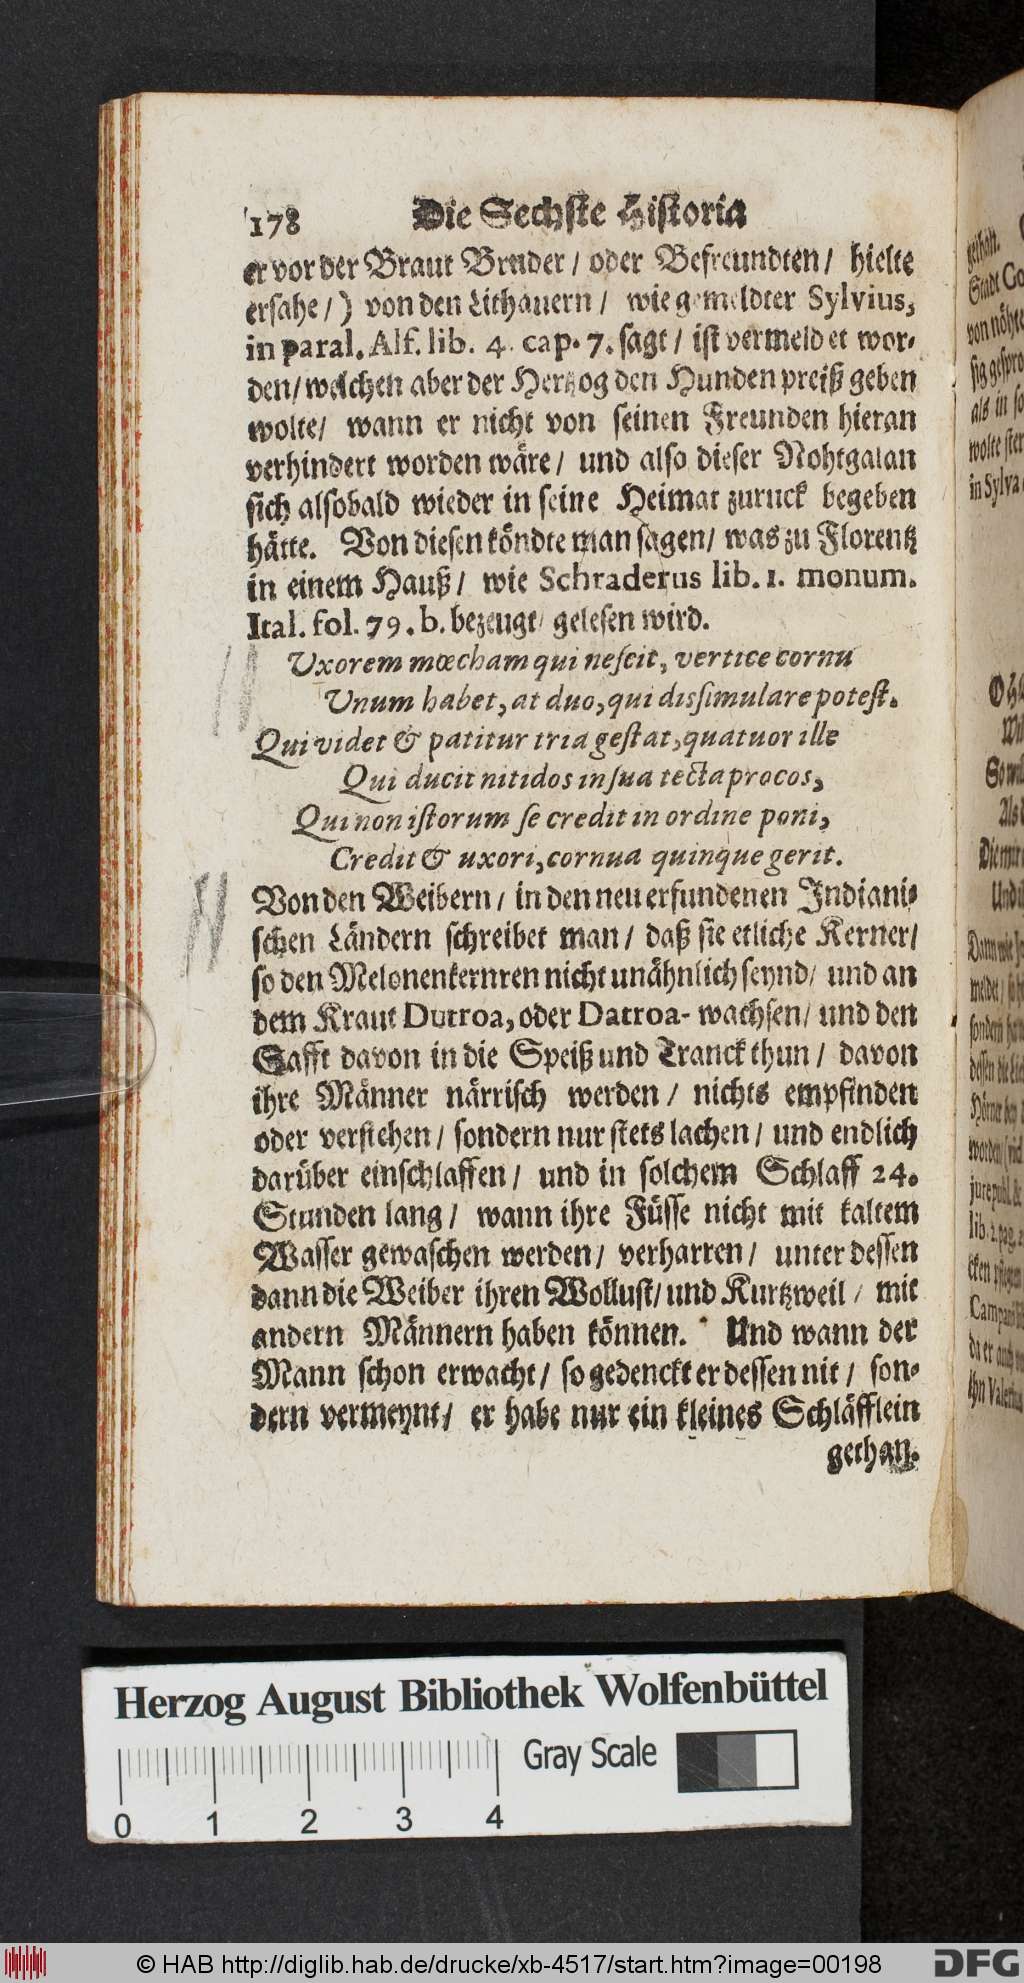 178 Die Sechste Historia
er vor der Braut Bruder / oder Befreundten / hielte
ersahe /) von den Lithauern / wie gemeldter Sylvius,
in paral. Alf. lib. 4. cap. 7. sagt / ist vermeldet wor-
den / welchen aber der Hertzog den Hunden preiß geben
wolte / wann er nicht von seinen Freunden hieran
verhindert worden wäre / und also dieser Nohtgalan
sich alsobald wieder in seine Heimat zuruck begeben
hätte. Von diesen köndte man sagen / was zu Florentz
in einem Hauß / wie Schraderus lib. 1. monum.
Ital. fol. 79. b. bezeugt / gelesen wird.
Uxorem mœcham qui nescit, vertice cornu
Unum habet, at duo, qui dissimulare potest.
Qui videt & patitur tria gestat, quatuor ille
Qui ducit nitidos in sua tecta procos,
Qui non istorum se credit in ordine poni,
Credit & uxori, cornua quinque gerit.
Von den Weibern / in den neu erfundenen Indiani-
schen Ländern schreibet man / daß sie etliche Kerner /
so den Melonenkernren nicht unähnlich seynd / und an
dem Kraut Dutroa, oder Datroa- wachsen / und den
Safft davon in die Speiß und Tranck thun / davon
ihre Männer närrisch werden / nichts empfinden
oder verstehen / sondern nur stets lachen / und endlich
darüber einschlaffen / und in solchem Schlaff 24.
Stunden lang / wann ihre Füsse nicht mit kaltem
Wasser gewaschen werden / verharren / unter dessen
dann die Weiber ihren Wollust / und Kurtzweil / mit
andern Männern haben können. Und wann der
Mann schon erwacht / so gedenckt er dessen nit / son-
dern vermeynt / er habe nur ein kleines Schläfflein
gethan.
Herzog August Bibliothek Wolfenbüttel
Gray Scale
0 1 2 3 4
© HAB http://diglib.hab.de/drucke/xb-4517/start.htm?image=00198
DFG